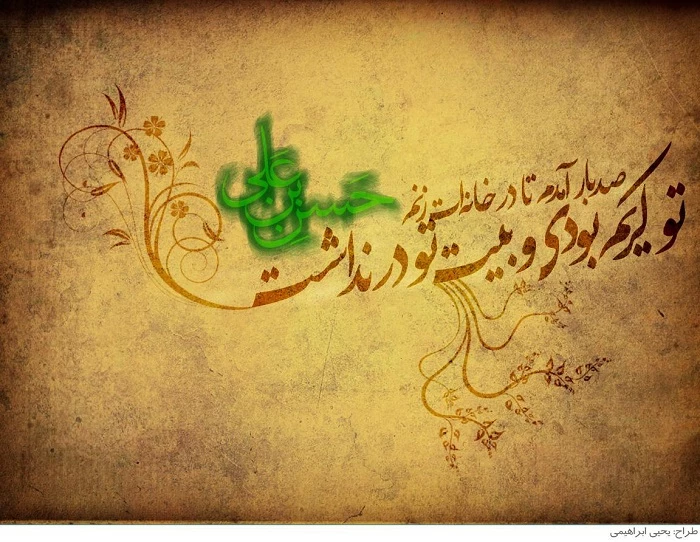 صدبار آمدم تا در خانه‌ات زنم
تو کریم بودی و بیت تو در نداشت
حَسن بن عَلی
طراح: یحیی ابراهیمی